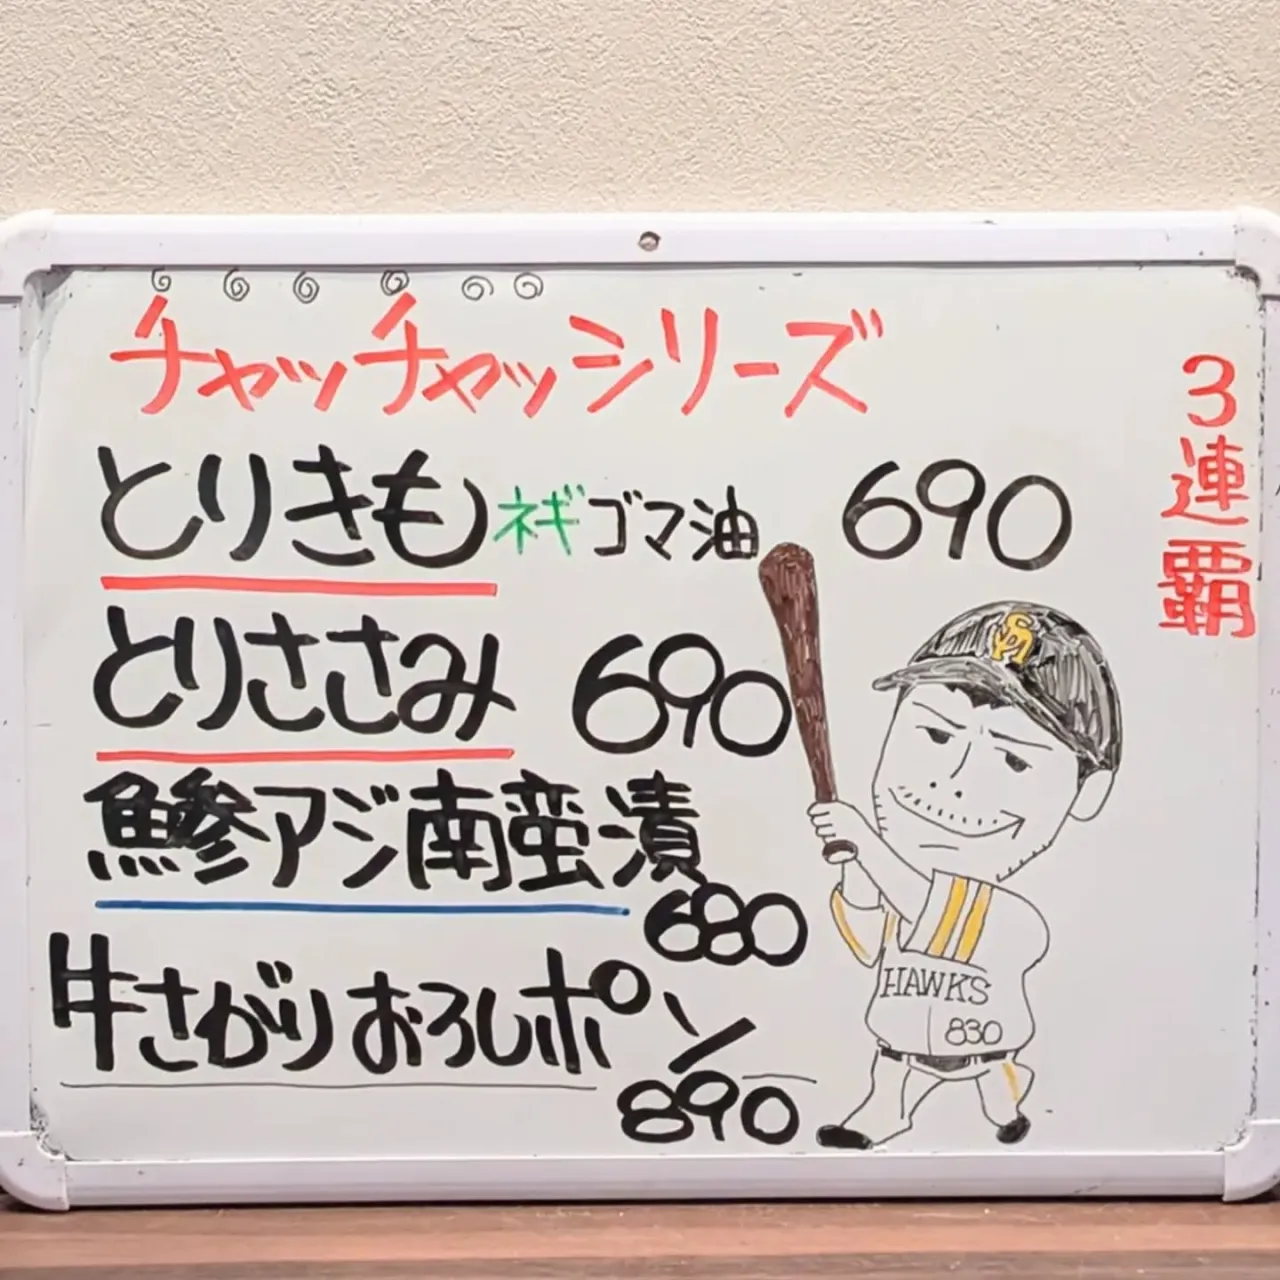 チャッチャッシリーズ
とりきも ネギゴマ油 690
とりささみ 690
鯵アジ南蛮漬
680
牛さがりおろしポン
890
3連覇
SH
HAWKS
830